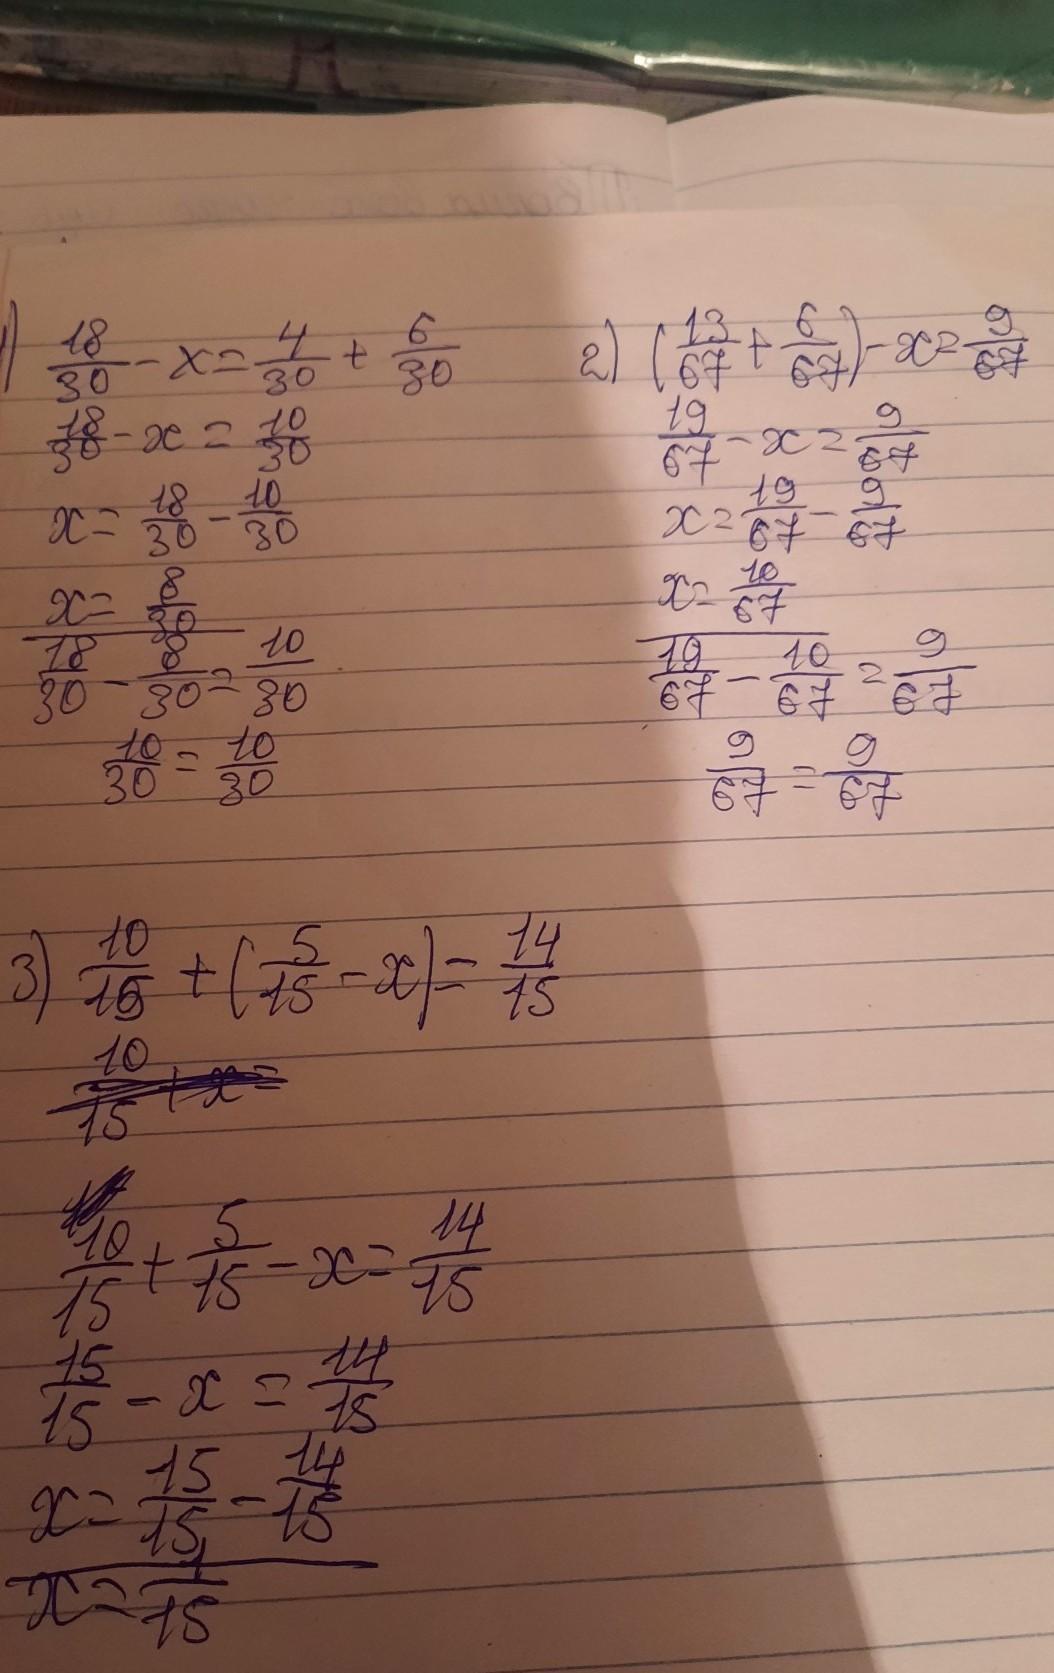 1) 18/30 - x = 4/30 + 6/30
18/30 - x = 10/30
x = 18/30 - 10/30
x = 8/30
18/30 - 8/30 = 10/30
10/30 = 10/30
2) (13/67 + 6/67) - x = 9/67
19/67 - x = 9/67
x = 19/67 - 9/67
x = 10/67
19/67 - 10/67 = 9/67
9/67 = 9/67
3) 10/15 + (5/15 - x) = 14/15
10/15 + x =
10/15 + 5/15 - x = 14/15
15/15 - x = 14/15
x = 15/15 - 14/15
x = 1/15